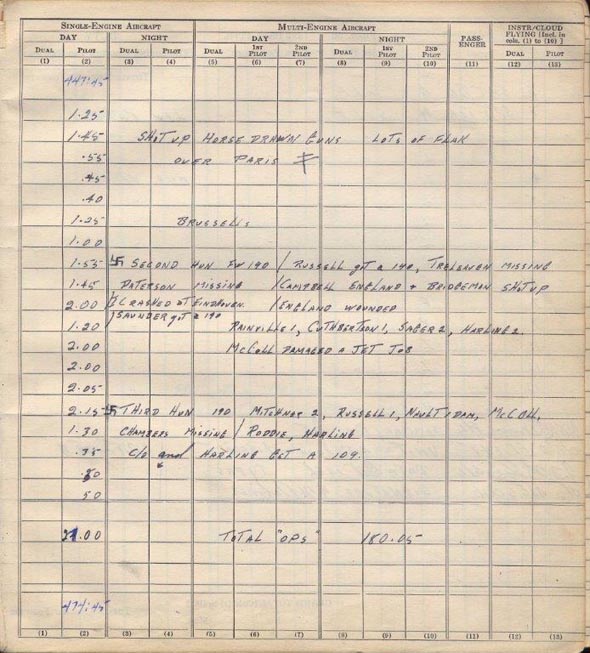 SINGLE-ENGINE AIRCRAFT MULTI-ENGINE AIRCRAFT PASS-ENGER INSTR/CLOUD FLYING [Incl. in cols. (1) to (10)]
DAY NIGHT DAY NIGHT
DUAL PILOT DUAL PILOT DUAL 1ST PILOT 2ND PILOT DUAL 1ST PILOT 2ND PILOT DUAL PILOT
(1) (2) (3) (4) (5) (6) (7) (8) (9) (10) (11) (12) (13)
447:45
1.25
1.45 SHOT UP HORSE DRAWN GUNS LOTS OF FLAK
.55 OVER PARIS
.45
.40
1.25 BRUSSELLS
1.00
1.55 卐 SECOND HUN FW 190 / RUSSELL got a 190, TRELEAVEN MISSING
1.45 PATERSON MISSING / CAMPBELL ENGLAND + BRIDGEMON SHOT UP
2.00 CRASHED AT EINDHOVEN. / ENGLAND WOUNDED
1.20 SAUNDER got a 190 RAINVILLE 1, CUTHBERTSON 1, SAGER 2, HARLING 2.
2.00 McCOLL DAMAGED A JET JOB
2.00
2.05
2.15 卐 THIRD HUN 190 MITCHNER 2, RUSSELL 1, NAULT 1 DAM, McCOLL,
1.30 CHAMBERS MISSING / RODDIE, HARLING
.35 C/O and HARLING GET A 109.
50
.00 TOTAL "OPS" 180.05
474:45
(1) (2) (3) (4) (5) (6) (7) (8) (9) (10) (11) (12) (13)